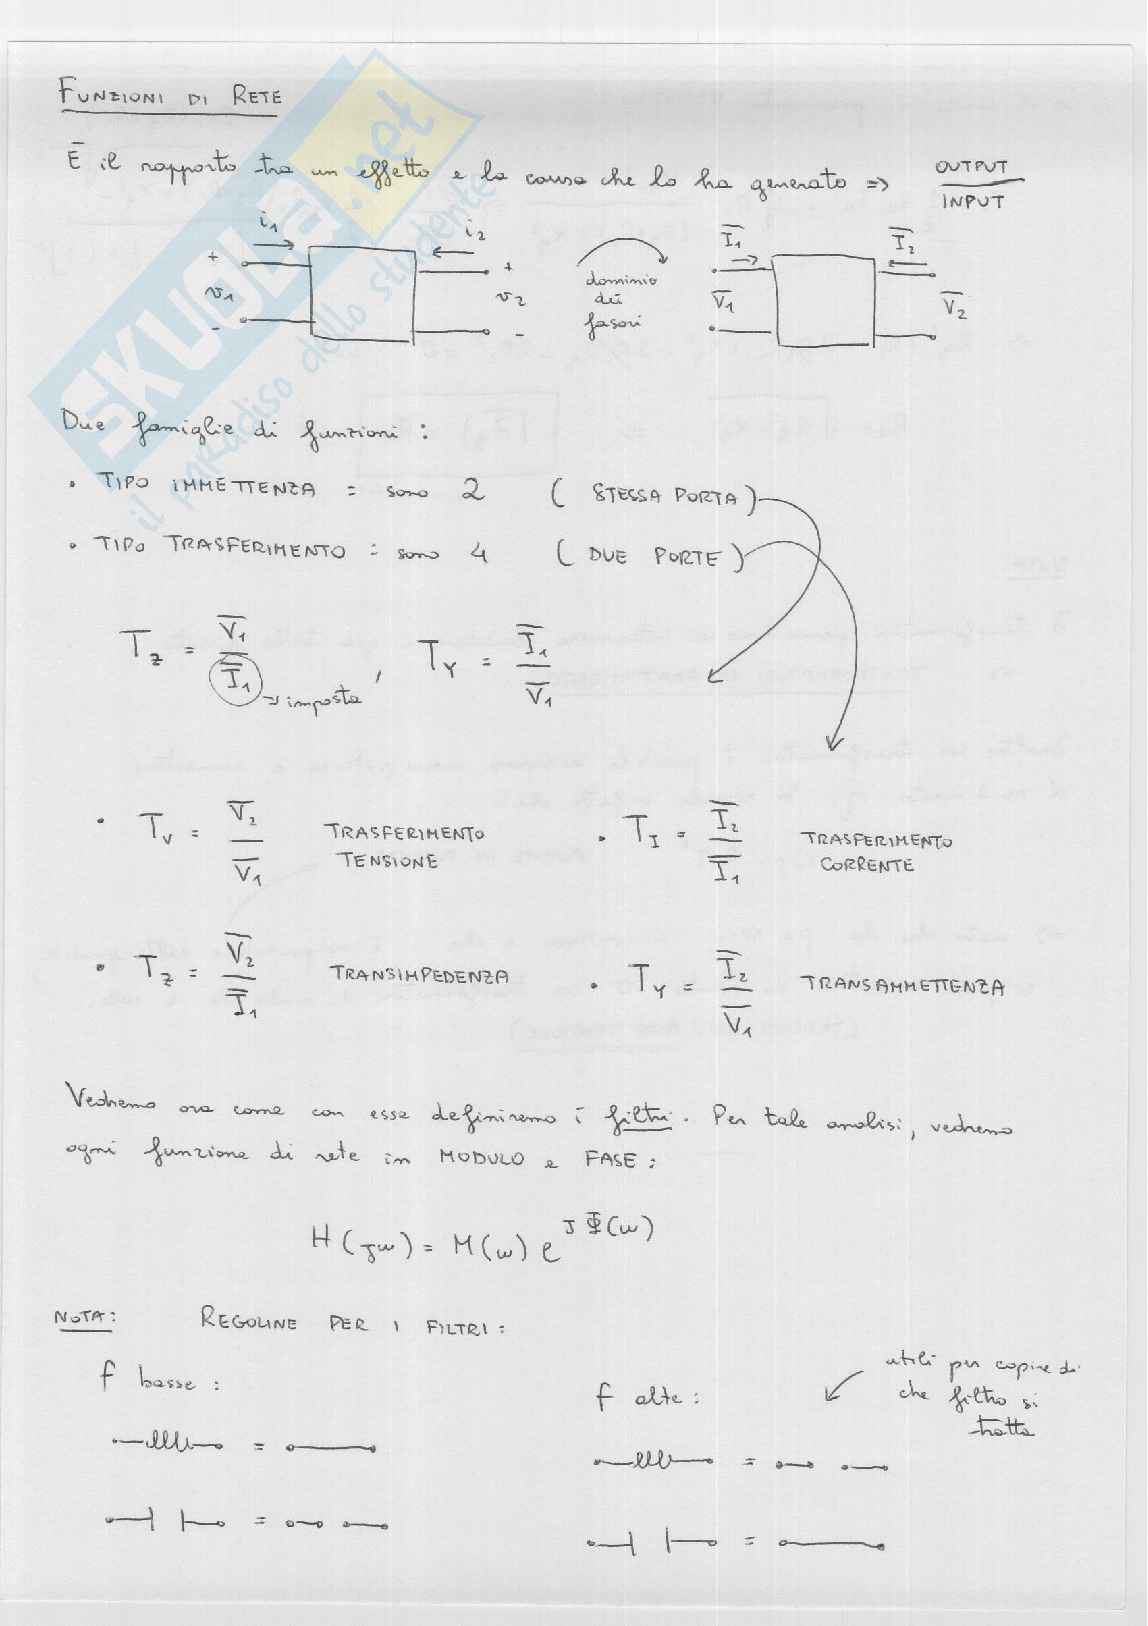 FUNZIONI DI RETE
È il rapporto tra un effetto e la causa che lo ha generato => OUTPUT / INPUT
i1 i2 I̅1 I̅2
+ + dominio
v1 v2 dei V̅1 V̅2
- - fasori
Due famiglie di funzioni:
• TIPO IMMETTENZA = sono 2 ( STESSA PORTA )
• TIPO TRASFERIMENTO = sono 4 ( DUE PORTE )
TZ = V̅1 / I̅1 => imposta , TY = I̅1 / V̅1
• TV = V̅2 / V̅1 TRASFERIMENTO TENSIONE • TI = I̅2 / I̅1 TRASFERIMENTO CORRENTE
• TZ = V̅2 / I̅1 TRANSIMPEDENZA • TY = I̅2 / V̅1 TRANSAMMETTENZA
Vedremo ora come con esse definiremo i filtri. Per tale analisi, vedremo
ogni funzione di rete in MODULO e FASE:
H(jω) = M(ω) e^jΦ(ω)
NOTA: REGOLINE PER I FILTRI:
f basse :
f alte :
utili per capire di
che filtro si
tratta
=
=
=
=
SKUOLA.net
il paradiso dello studente